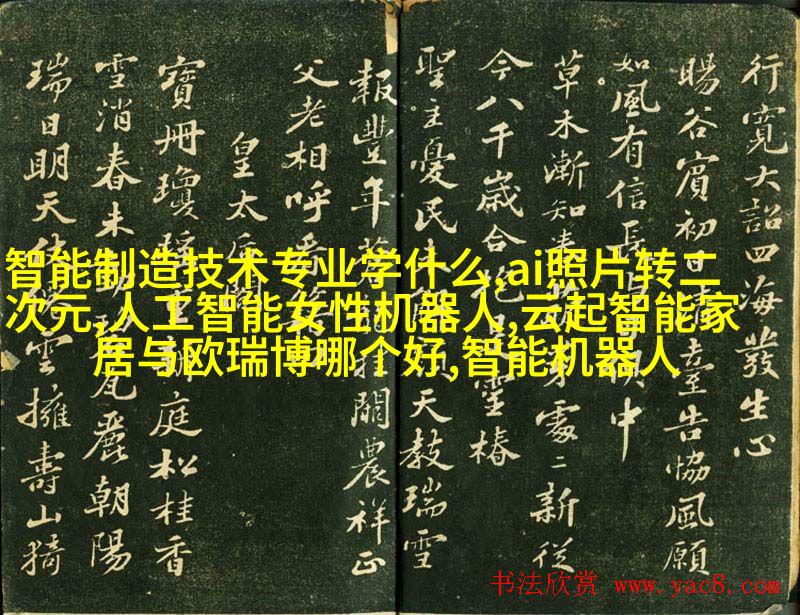 行寬大詔四海發生心
暘谷賓初日清臺告協風願
如風有信長 日 中
草木漸知春 芽處二新從
今八千歲合抱是靈椿
聖主憂民 天教瑞雪
報豐年 蒼龍挂闕農祥正
父老相呼看
皇太后閣
寶冊瓊瑤重 庭松桂香
雪消春未動 瓦麗朝陽
瑞日明天仗 雲擁壽山猗
智能制造技术专业学什么,ai照片转二
次元,人工智能女性机器人,云起智能家
居与欧瑞博哪个好,智能机器人
书法欣赏 www.yac8.com